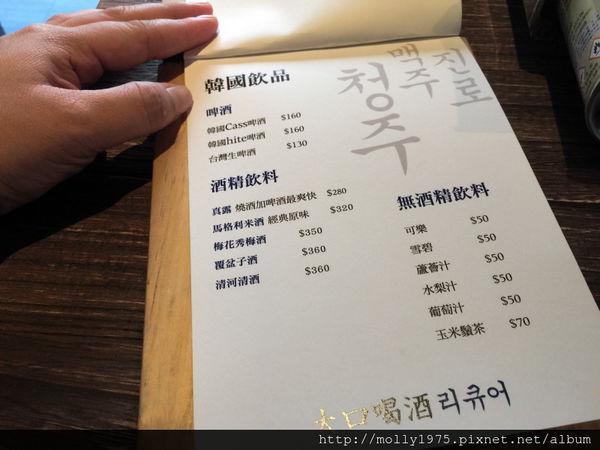 韓國飲品
啤酒
韓國Cass啤酒 $160
韓國hite啤酒 $160
台灣生啤酒 $130
酒精飲料
真露 燒酒加啤酒最爽快 $280
馬格利米酒 經典原味 $320
梅花秀梅酒 $350
覆盆子酒 $360
清河清酒 $360
청주
맥주
진로
無酒精飲料
可樂 $50
雪碧 $50
蘆薈汁 $50
水梨汁 $50
葡萄汁 $50
玉米鬚茶 $70
大口喝酒 리큐어
http://molly1975.pixnet.net/album